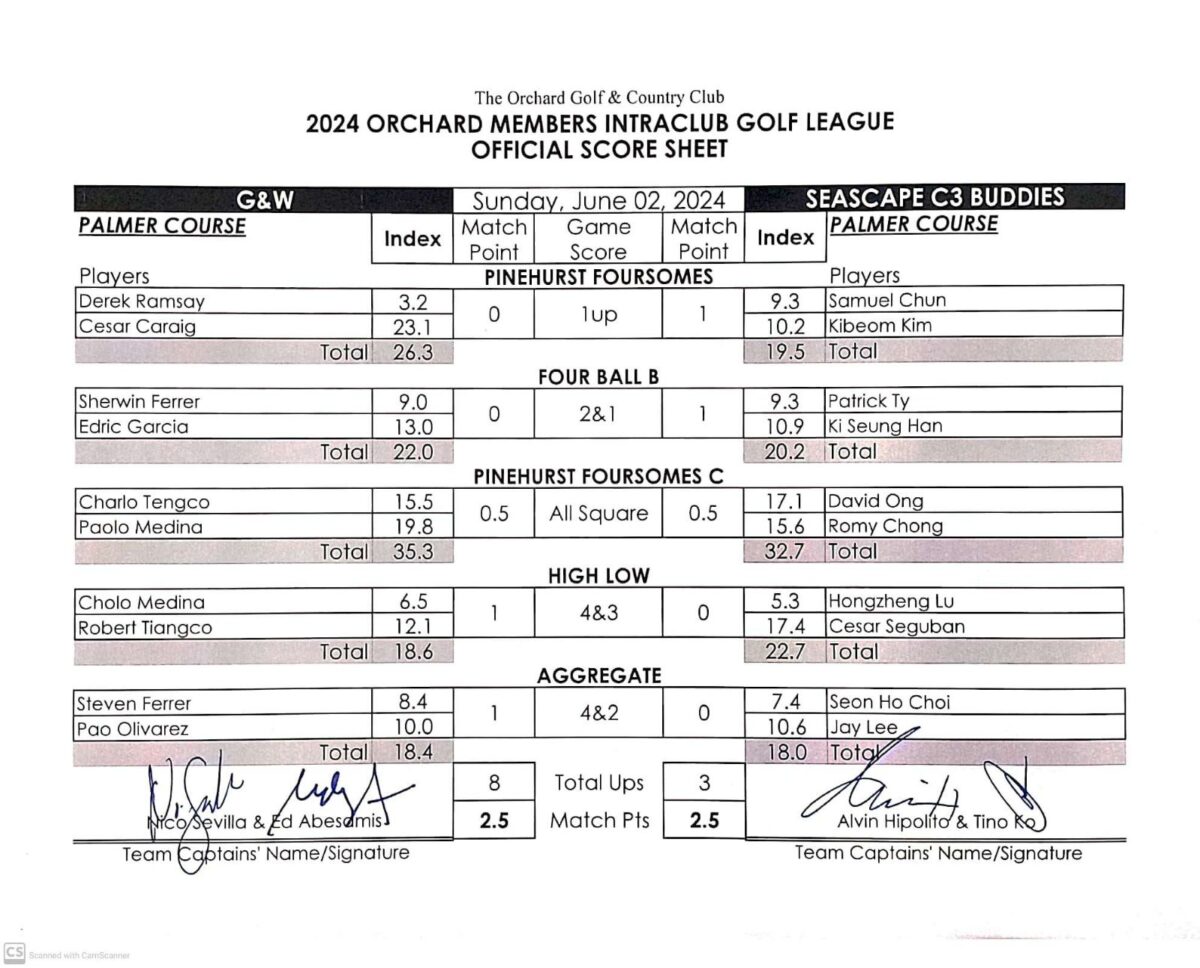 The Orchard Golf & Country Club
2024 ORCHARD MEMBERS INTRACLUB GOLF LEAGUE
OFFICIAL SCORE SHEET
G&W Sunday, June 02, 2024 SEASCAPE C3 BUDDIES
PALMER COURSE Index Match Point Game Score Match Point Index PALMER COURSE
Players PINEHURST FOURSOMES Players
Derek Ramsay 3.2 0 1up 1 9.3 Samuel Chun
Cesar Caraig 23.1 10.2 Kibeom Kim
Total 26.3 19.5 Total
FOUR BALL B
Sherwin Ferrer 9.0 0 2&1 1 9.3 Patrick Ty
Edric Garcia 13.0 10.9 Ki Seung Han
Total 22.0 20.2 Total
PINEHURST FOURSOMES C
Charlo Tengco 15.5 0.5 All Square 0.5 17.1 David Ong
Paolo Medina 19.8 15.6 Romy Chong
Total 35.3 32.7 Total
HIGH LOW
Cholo Medina 6.5 1 4&3 0 5.3 Hongzheng Lu
Robert Tiangco 12.1 17.4 Cesar Seguban
Total 18.6 22.7 Total
AGGREGATE
Steven Ferrer 8.4 1 4&2 0 7.4 Seon Ho Choi
Pao Olivarez 10.0 10.6 Jay Lee
Total 18.4 18.0 Total
8 Total Ups 3
Nico Sevilla & Ed Abesamis 2.5 Match Pts 2.5 Alvin Hipolito & Tino Ko
Team Captains' Name/Signature Team Captains' Name/Signature
CS Scanned with CamScanner